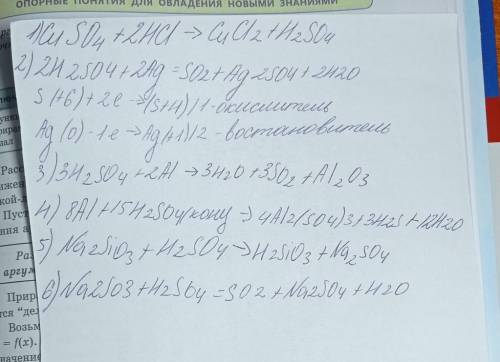 ОПОРНЫЕ ПОНЯТИЯ ДЛЯ ОВЛАДЕНИЯ НОВЫМИ ЗНАНИЯМИ
1) CuSO4 + 2HCl → CuCl2 + H2SO4
2) 2H2SO4 + 2Ag = SO2 + Ag2SO4 + 2H2O
S (+6) + 2e → (S+4) / 1 - окислитель
Ag (0) - 1e → Ag(+1) / 2 - востановитель
3) 3H2SO4 + 2Al → 3H2O + 3SO2 + Al2O3
4) 8Al + 15H2SO4(конц) → 4Al2(SO4)3 + 3H2S + 12H2O
5) Na2SiO3 + H2SO4 → H2SiO3 + Na2SO4
6) Na2SO3 + H2SO4 = SO2 + Na2SO4 + H2O
Расс
кой-л
Пуст
ния а
Раз
аргум
Прир
тся "дел
Возьм
= f(x).
значение